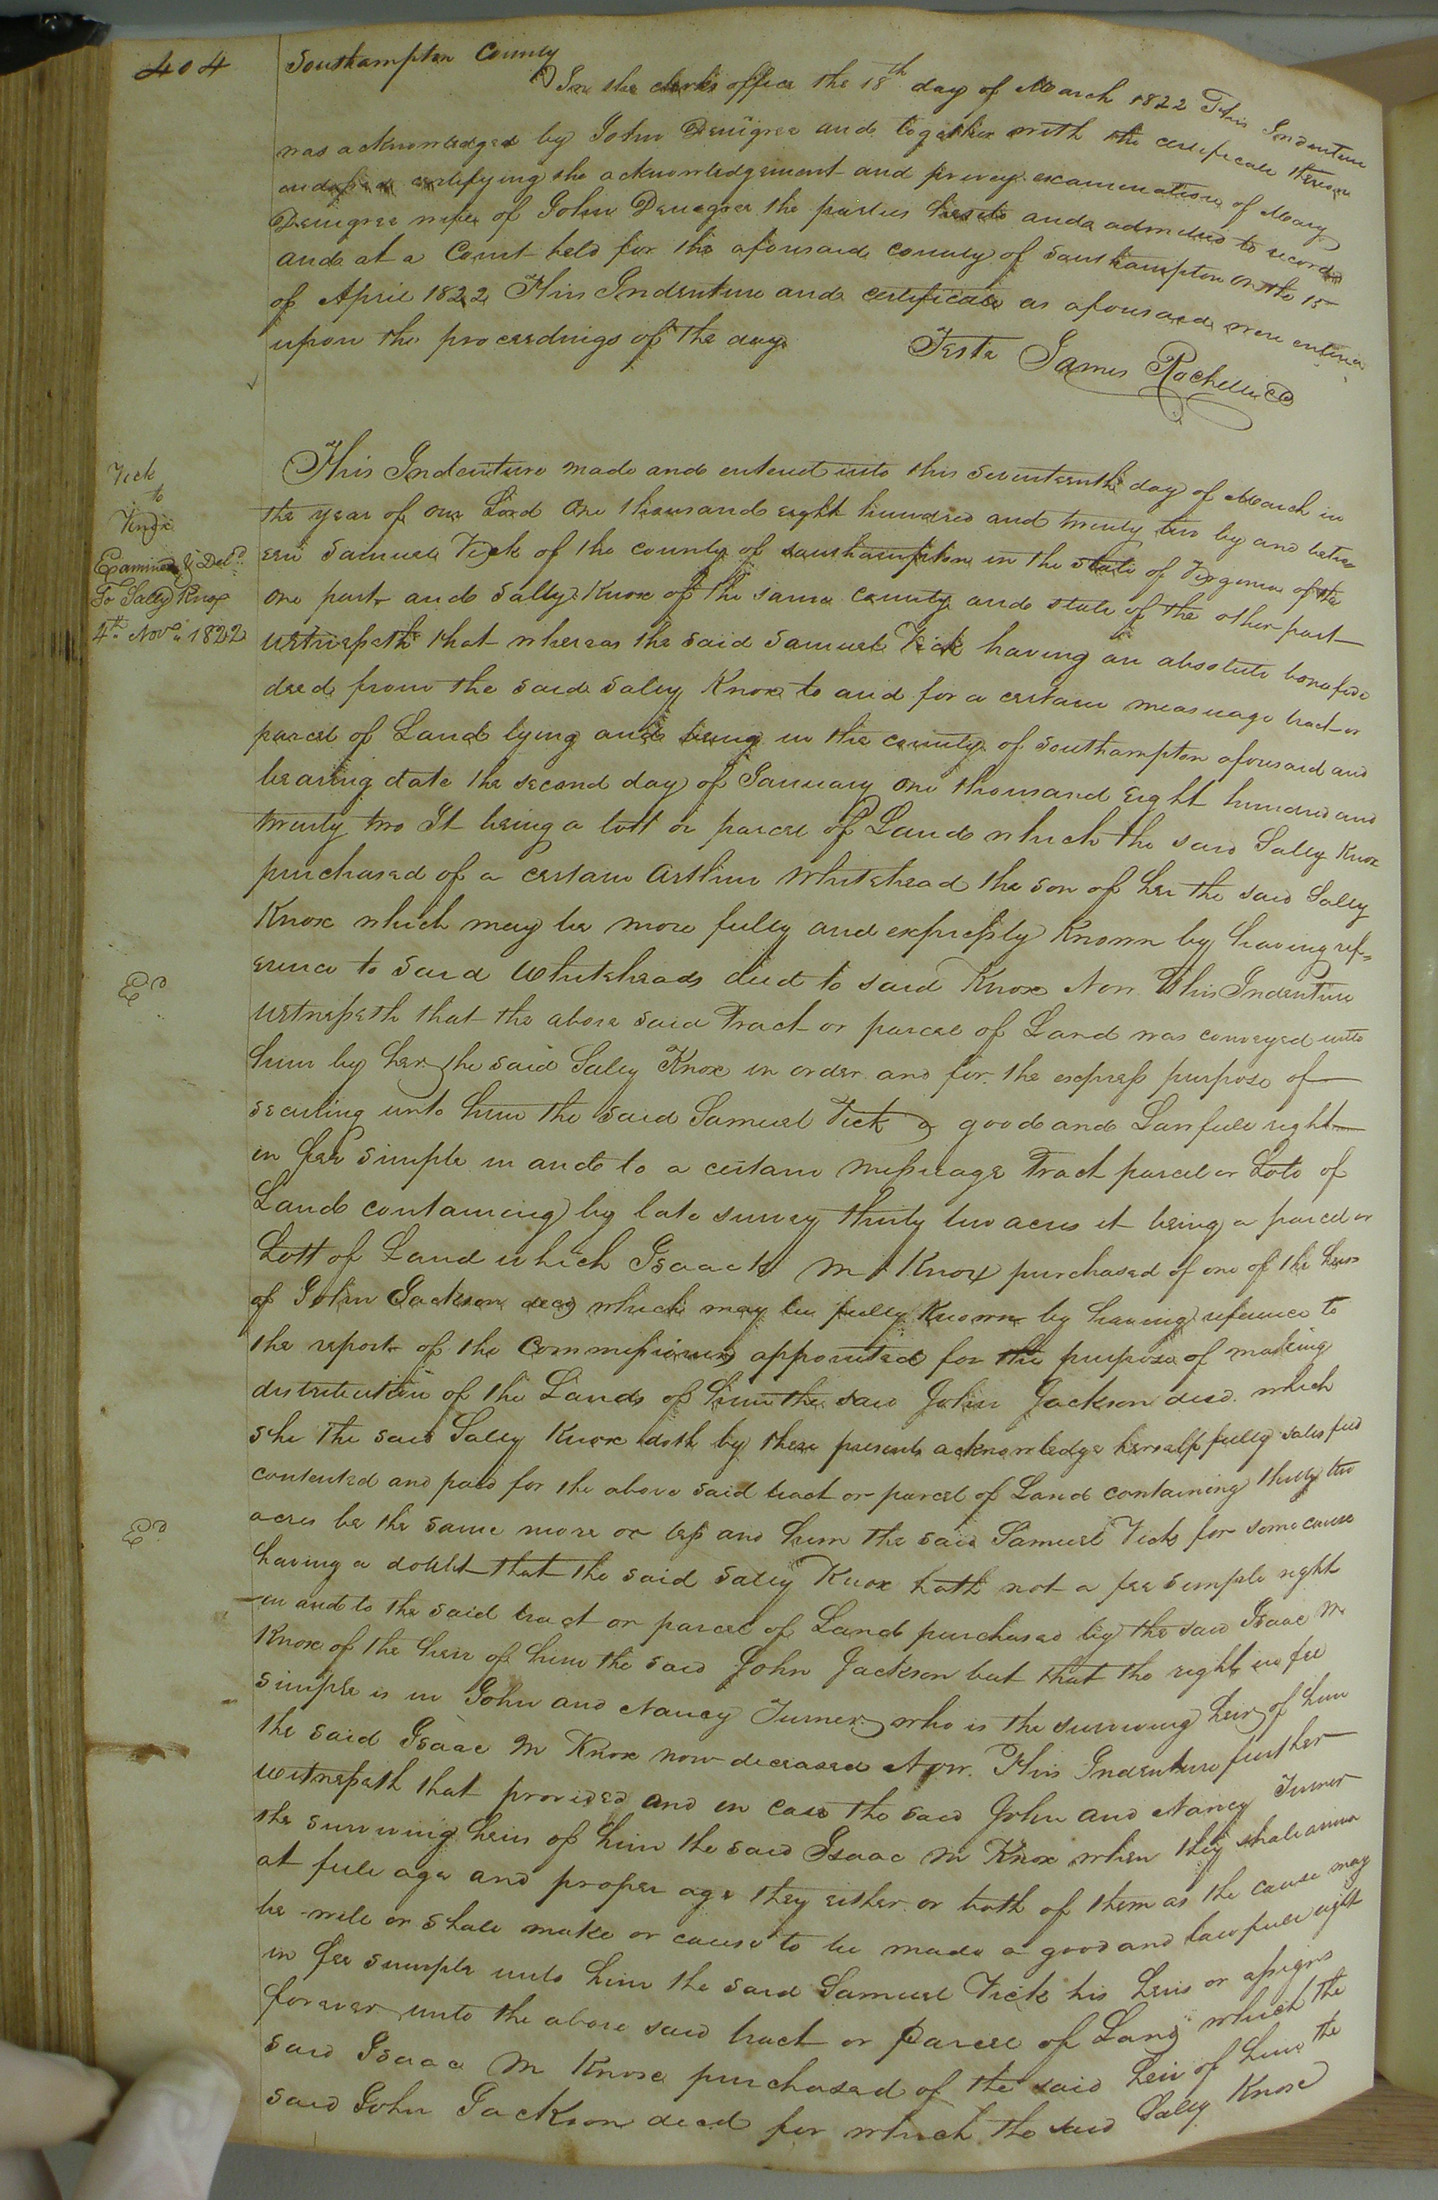 404
Southampton County
In the clerks office the 18th day of March 1822 This Indenture
was acknowledged by John Denegree and together with the certificate thereon
endorsed certifying the acknowledgement and privy examination of Mary
Denegree wife of John Denegree the parties hereto and admitted to record
and at a Court held for the aforesaid county of Southampton on the 15
of April 1822 This Indenture and certificate as aforesaid were entered
upon the proceedings of the day
Teste James Rochelle CC
Vick
to
Knox
Examined & Deld
To Sally Knox
4th Novr 1822
This Indenture made and entered into this Seventeenth day of March in
the year of our Lord One thousand eight hundred and twenty two by and betwe
een Samuel Vick of the county of Southampton in the state of Virginia of the
one part and Sally Knox of the same county and state of the other part
Witnesseth that whereas the said Samuel Vick having an absolute bonafide
deed from the said Sally Knox to and for a certain measuage tract or
parcel of Land lying and being in the county of Southampton aforesaid and
bearing date the second day of January one thousand Eight hundred and
twenty two It being a lott or parcel of Land which the said Sally Knox
purchased of a certain Arthur Whitehead the son of her the said Sally
Knox which may be more fully and expressly Known by having ref=
erence to said Whiteheads deed to said Knox Now This Indenture
Witnesseth that the above said Tract or parcel of Land was conveyed unto
him by her the said Sally Knox in order and for the express purpose of
securing unto him the said Samuel Vick a good and Lanfull right
in fee simple in and to a certain messuage Tract parcel or Lots of
Land containing by late survey thirty two acres it being a parcel or
Lott of Land which Isaack M Knox purchased of one of the heirs
of John Jackson decd which may be fully Known by having reference to
the report of the Commissioners appointed for the purpose of making
distribution of the Lands of him the said John Jackson decd. which
she the said Sally Knox doth by these presents acknowledge herself fully satisfied
contented and paid for the above said tract or parcel of Land containing thirty two
acres be the same more or less and him the said Samuel Vick for some cause
having a doubt that the said Sally Knox hath not a fee simple right
in and to the said tract or parcel of Land purchased by the said Isaac M
Knox of the heir of him the said John Jackson but that the right in fee
simple is in John and Nancy Turner who is the surviving heirs of him
the said Isaac M Knox now deceased Now. This Indenture further
witnesseth that provided and in case the said John and Nancy Turner
the surviving heirs of him the said Isaac M Knox when they shall arive
at full age and proper age they either or both of them as the cause may
be will or shall make or cause to be made a good and lawfull right
in fee simple unto him the said Samuel Vick his heirs or assigns
forever unto the above said tract or Parcel of Land which the
said Isaac M Knox purchased of the said heir of him the
said John Jackson decd for which the said Sally Knox